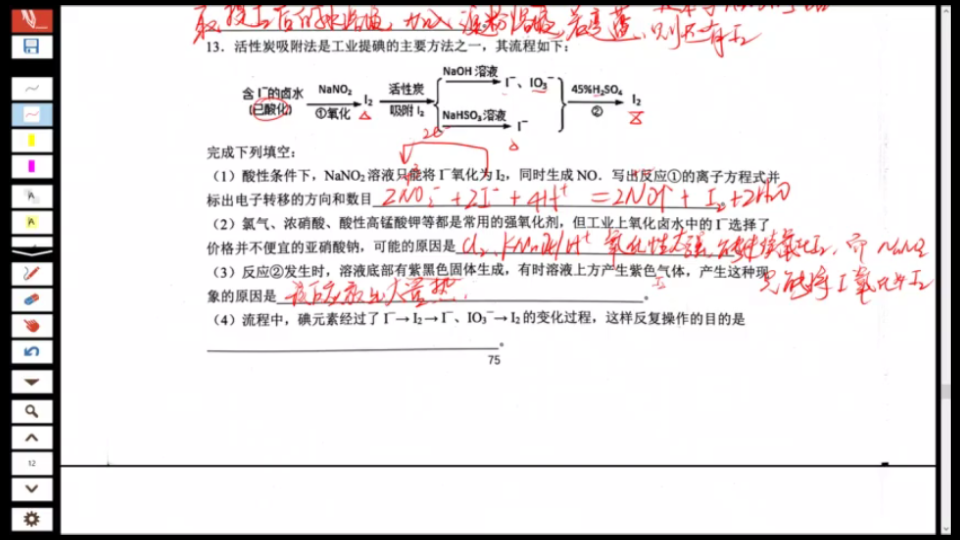 取                后的        加入淀粉溶液,若变蓝,则    有I₂
13.活性炭吸附法是工业提碘的主要方法之一,其流程如下:
NaOH 溶液
I⁻、IO₃⁻
含 I⁻的卤水 NaNO₂ I₂ 活性炭 45%H₂SO₄ I₂
(已酸化) ①氧化 △ 吸附 I₂ ② △
NaHSO₃溶液 I⁻
△
2e⁻
完成下列填空:
(1)酸性条件下,NaNO₂溶液只能将 I⁻氧化为 I₂,同时生成 NO.写出反应①的离子方程式并
标出电子转移的方向和数目 2NO₂⁻+2I⁻+4H⁺=2NO↑+I₂+2H₂O
(2)氯气、浓硝酸、酸性高锰酸钾等都是常用的强氧化剂,但工业上氧化卤水中的 I⁻选择了
价格并不便宜的亚硝酸钠,可能的原因是 Cl₂、KMnO₄/H⁺ 氧化性太强,能继续氧化I₂,而 NaNO₂
(3)反应②发生时,溶液底部有紫黑色固体生成,有时溶液上方产生紫色气体,产生这种现 只能将I⁻氧化成I₂
I₂
象的原因是 该反应放出大量热. 。
(4)流程中,碘元素经过了 I⁻→I₂→I⁻、IO₃⁻→I₂的变化过程,这样反复操作的目的是
。
75
12